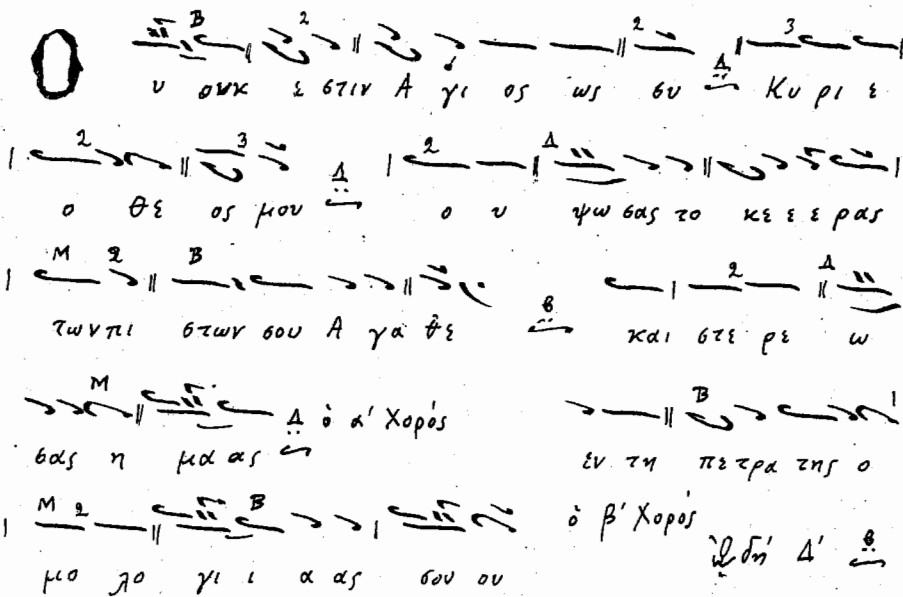 Ο υ ουκ ε στιν Α γι ος ως συ Κυ ρι ε
ο θε ος μου ο υ ψω σας το κε ε ε ρας
των πι στων σου Α γα θε και στε ρε ω
σας η μα ας ὁ α' Χορός εν τη πε τρα της ο
μο λο γι ι α ας σου ου ὁ β' Χορός
Ὠδή Δ'